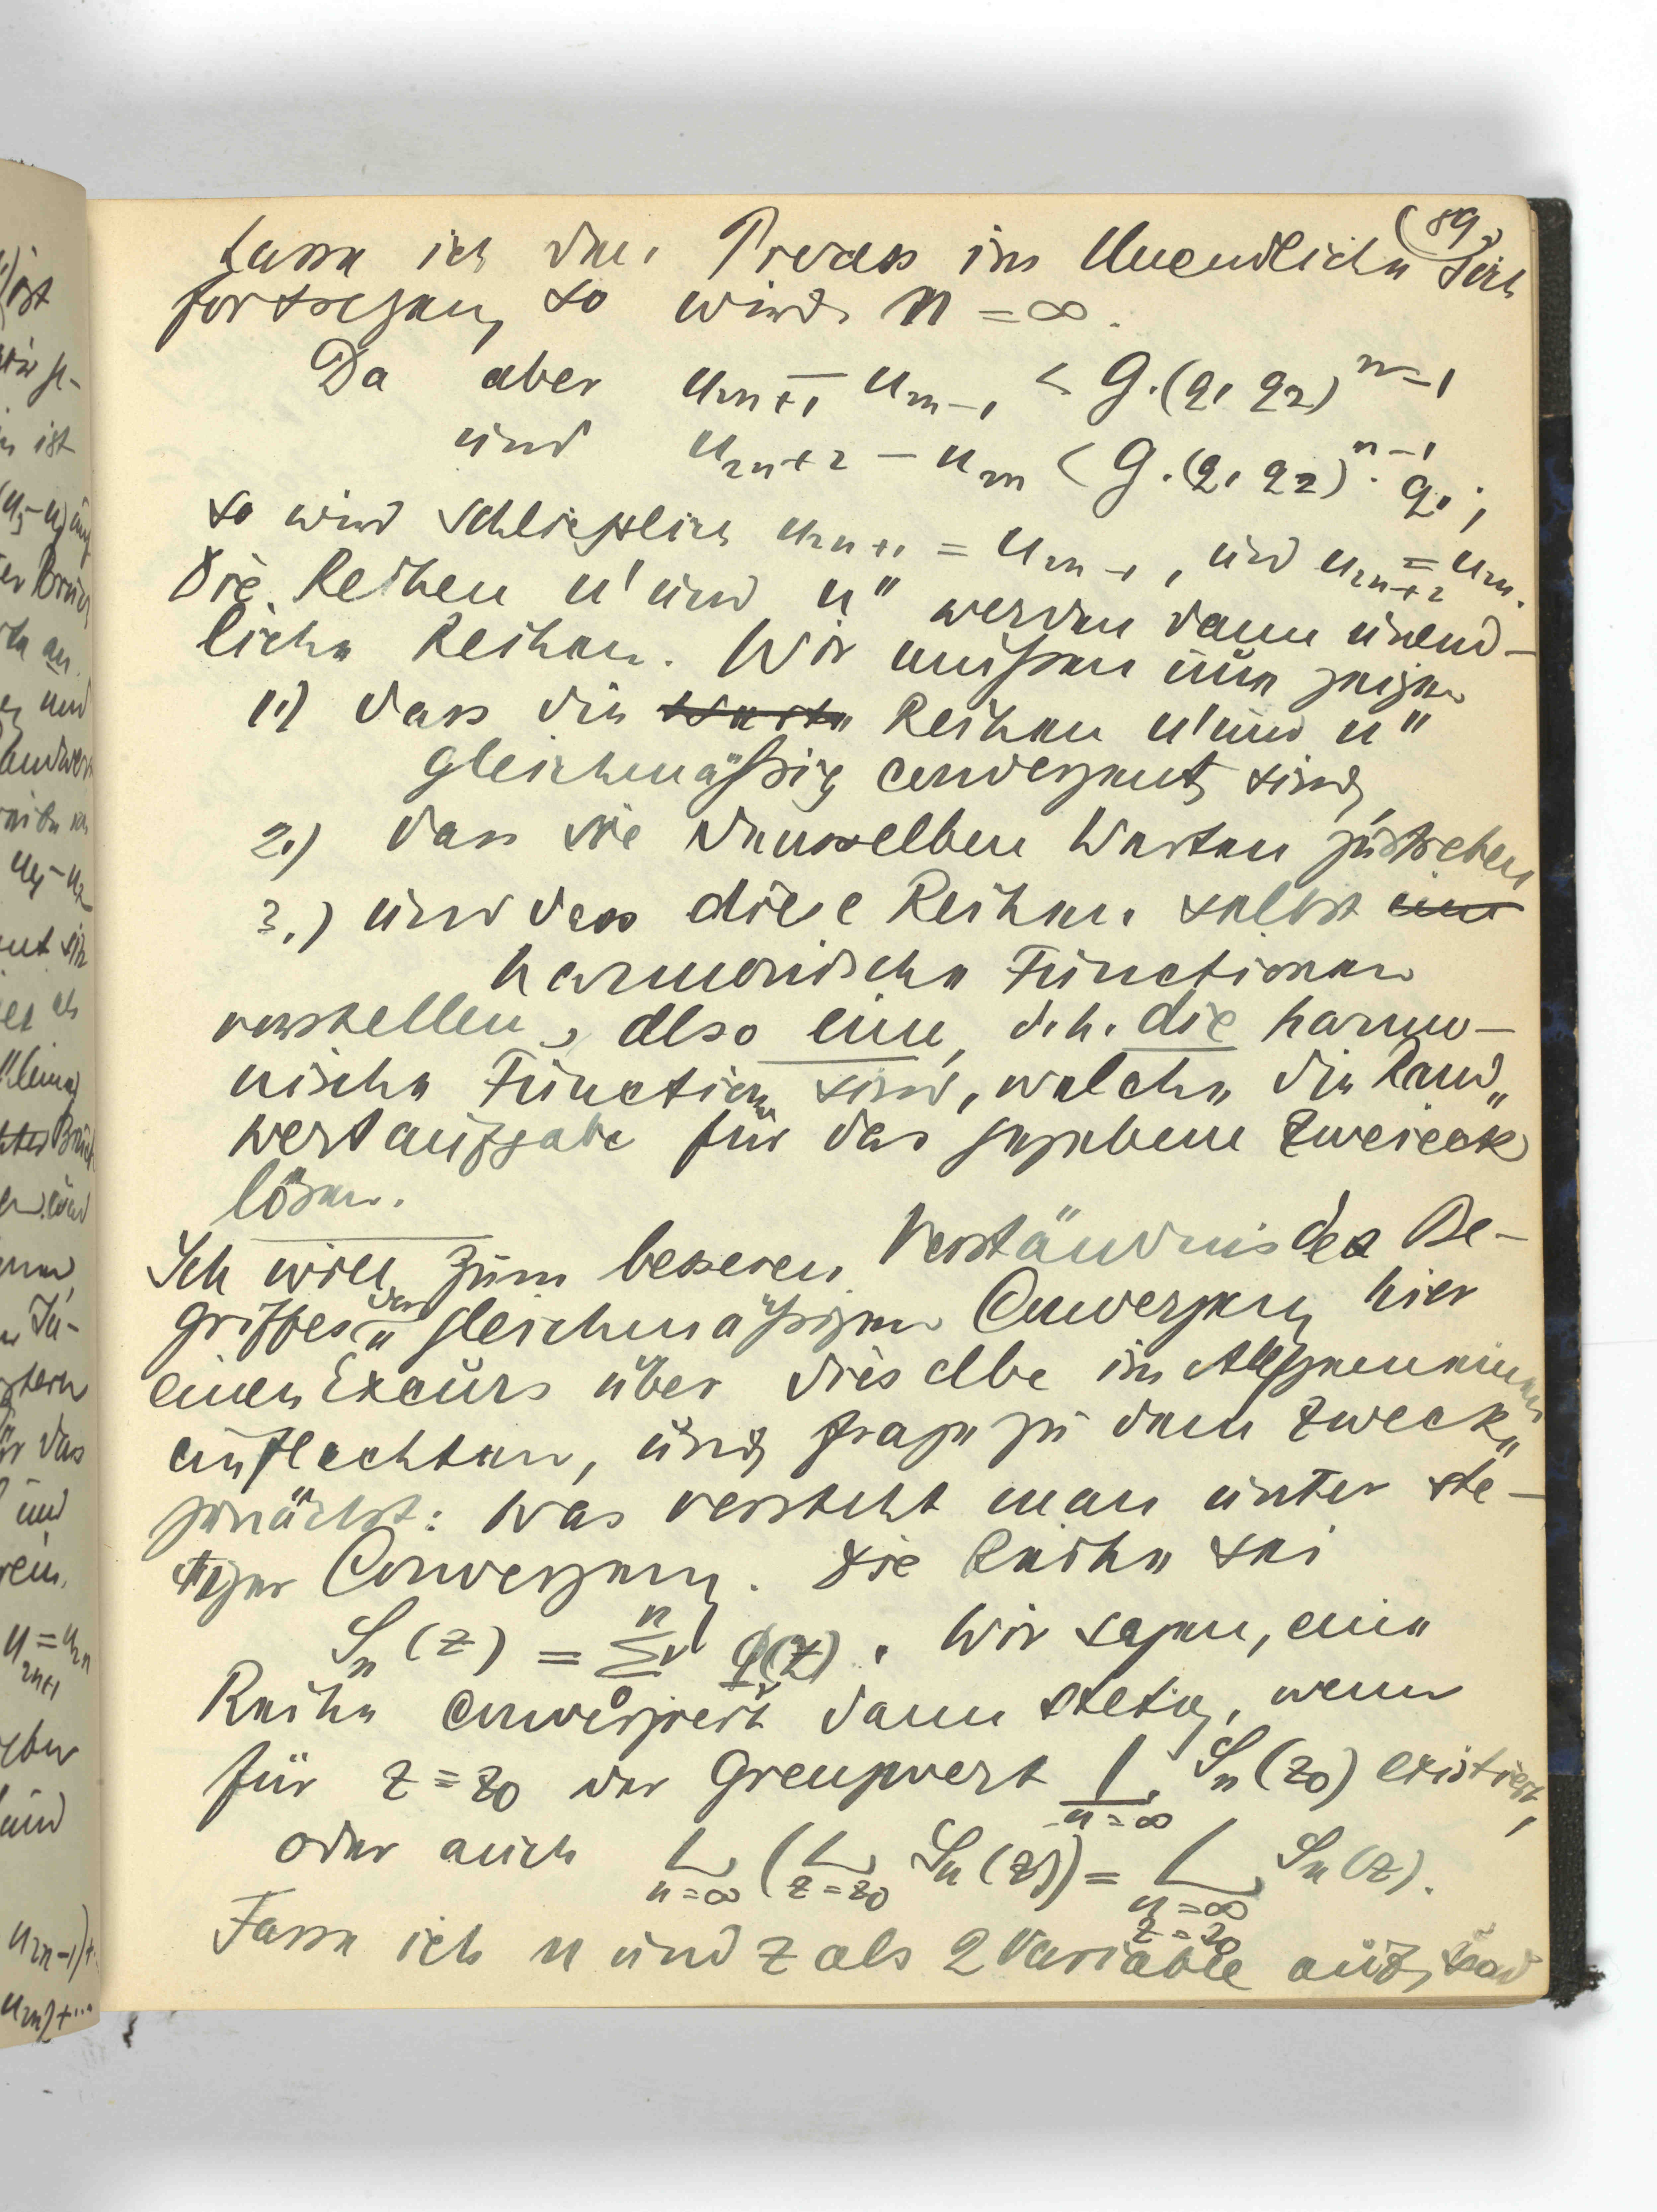 (89.
Lasse ich den Process ins Unendliche sich
fortsetzen, so wird n = ∞.
Da aber u₂ₙ₊₁ − u₂ₙ₋₁ < G.(q₁ q₂)ⁿ⁻¹
und u₂ₙ₊₂ − u₂ₙ < G.(q₁ q₂)ⁿ⁻¹. q₁;
so wird schliesslich u₂ₙ₊₁ = u₂ₙ₋₁, und u₂ₙ₊₂ = u₂ₙ.
Die Reihen u' und u" werden dann unend-
liche Reihen. Wir müssen nun zeigen
1.) dass die Reihen u' und u"
gleichmäßig convergent sind,
2.) dass sie denselben Werten zustreben
3.) und dass diese Reihen selbst eine
harmonische Functionen
vorstellen, also eine, d.h. die harmo-
nische Function sind, welche die Rand„
wertaufgabe für das gegebene Zweieck
lösen.
Ich will zum besseren Verständnis des Be-
griffes der gleichmäßigen Convergenz hier
einen Excurs über dieselbe im Allgemeinen
einflechten, und frage zu dem Zwecke
zunächst: Was versteht man unter ste-
tiger Convergenz. Die Reihe sei
Sₙ(z) = Σ φ(z). Wir sagen, eine
Reihe convergiert dann stetig, wenn
für z = z₀ der Grenzwert L Sₙ(z₀) existiert,
n = ∞
oder auch L (L Sₙ(z)) = L Sₙ(z).
n = ∞ z = z₀ n = ∞
z = z₀
Fasse ich n und z als 2 Variable auf,